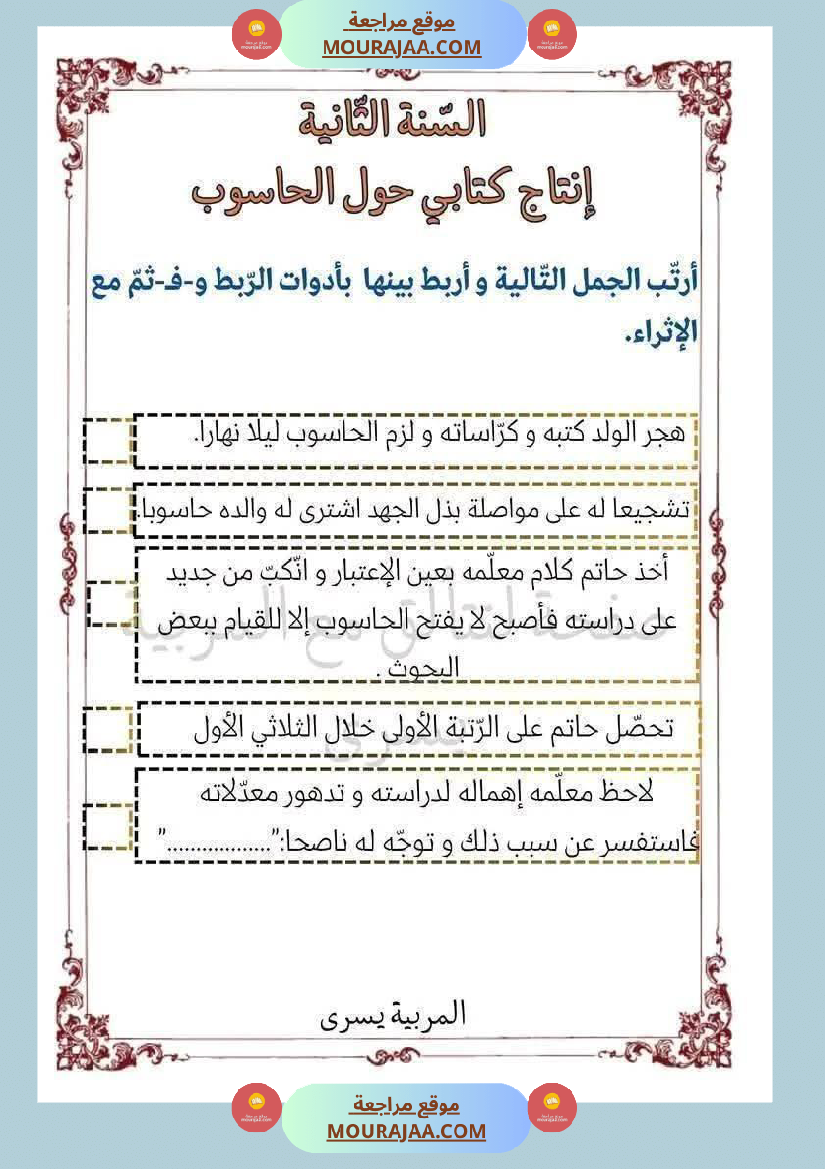 موقع مراجعة
MOURAJAA.COM
السّنة الثّانية
إنتاج كتابي حول الحاسوب
أرتّب الجمل التّالية و أربط بينها بأدوات الرّبط و-فـ-ثمّ مع
الإثراء.
هجر الولد كتبه و كرّاساته و لزم الحاسوب ليلا نهارا.
تشجيعا له على مواصلة بذل الجهد اشترى له والده حاسوبا.
أخذ حاتم كلام معلّمه بعين الإعتبار و انّكبّ من جديد
على دراسته فأصبح لا يفتح الحاسوب إلا للقيام ببعض
البحوث .
صفحة لنتألق مع المربية
يسرى
تحصّل حاتم على الرّتبة الأولى خلال الثلاثي الأول
لاحظ معلّمه إهماله لدراسته و تدهور معدّلاته
فاستفسر عن سبب ذلك و توجّه له ناصحا:".................."
المربية يسرى
موقع مراجعة
MOURAJAA.COM